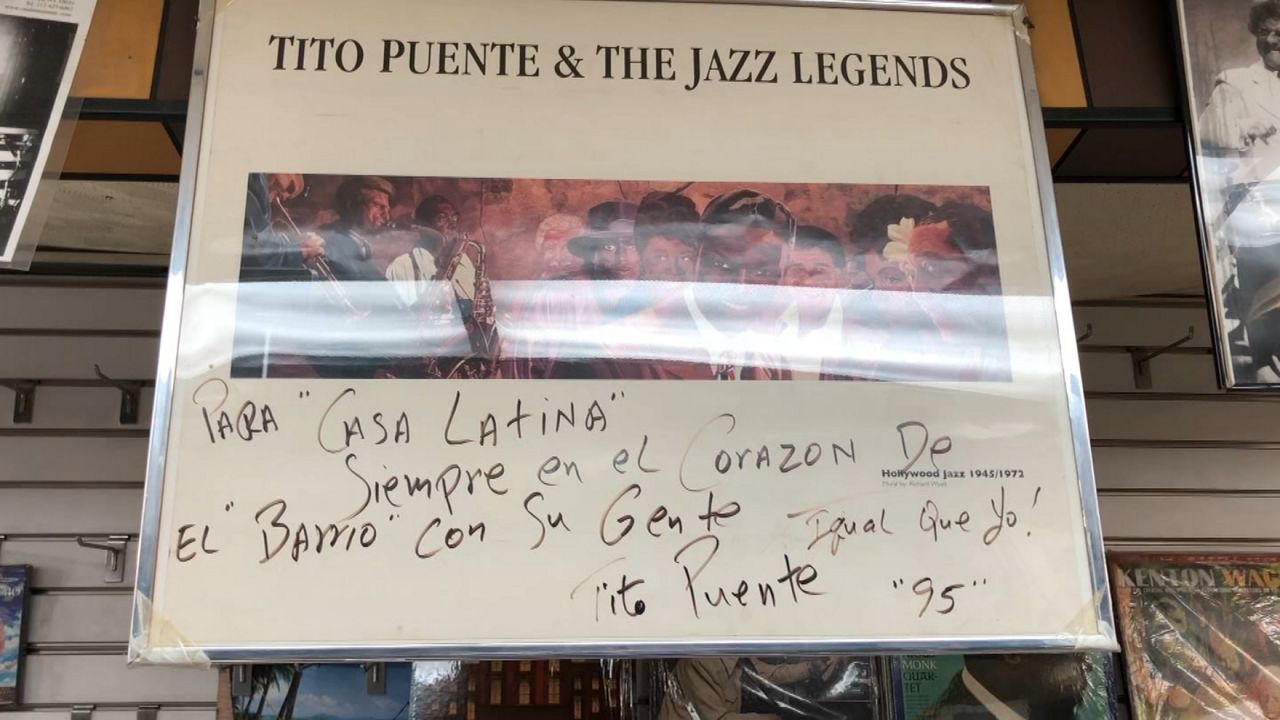 TITO PUENTE & THE JAZZ LEGENDS
PARA "CASA LATINA"
Siempre en el CORAZON De
Hollywood Jazz 1945/1972
Mural by Richard Wyatt
EL "BARRIO" CON Su Gente Igual Que Yo!
Tito Puente "95"
KENTON
MONK
QUAR-
TET